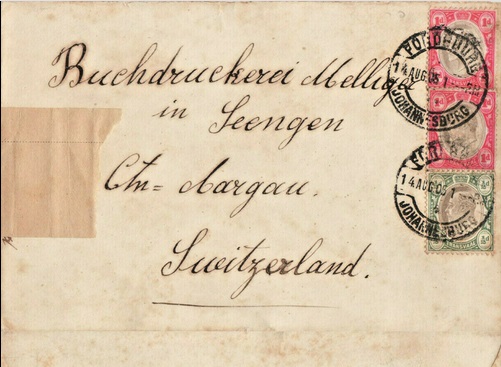 Buchdruckerei Melliger
in Seengen
Ctn= Aargau.
Switzerland.
FORDSBURG
JOHANNESBURG
1d
1d
14 AUG 05
JOHANNESBURG
½d
½d